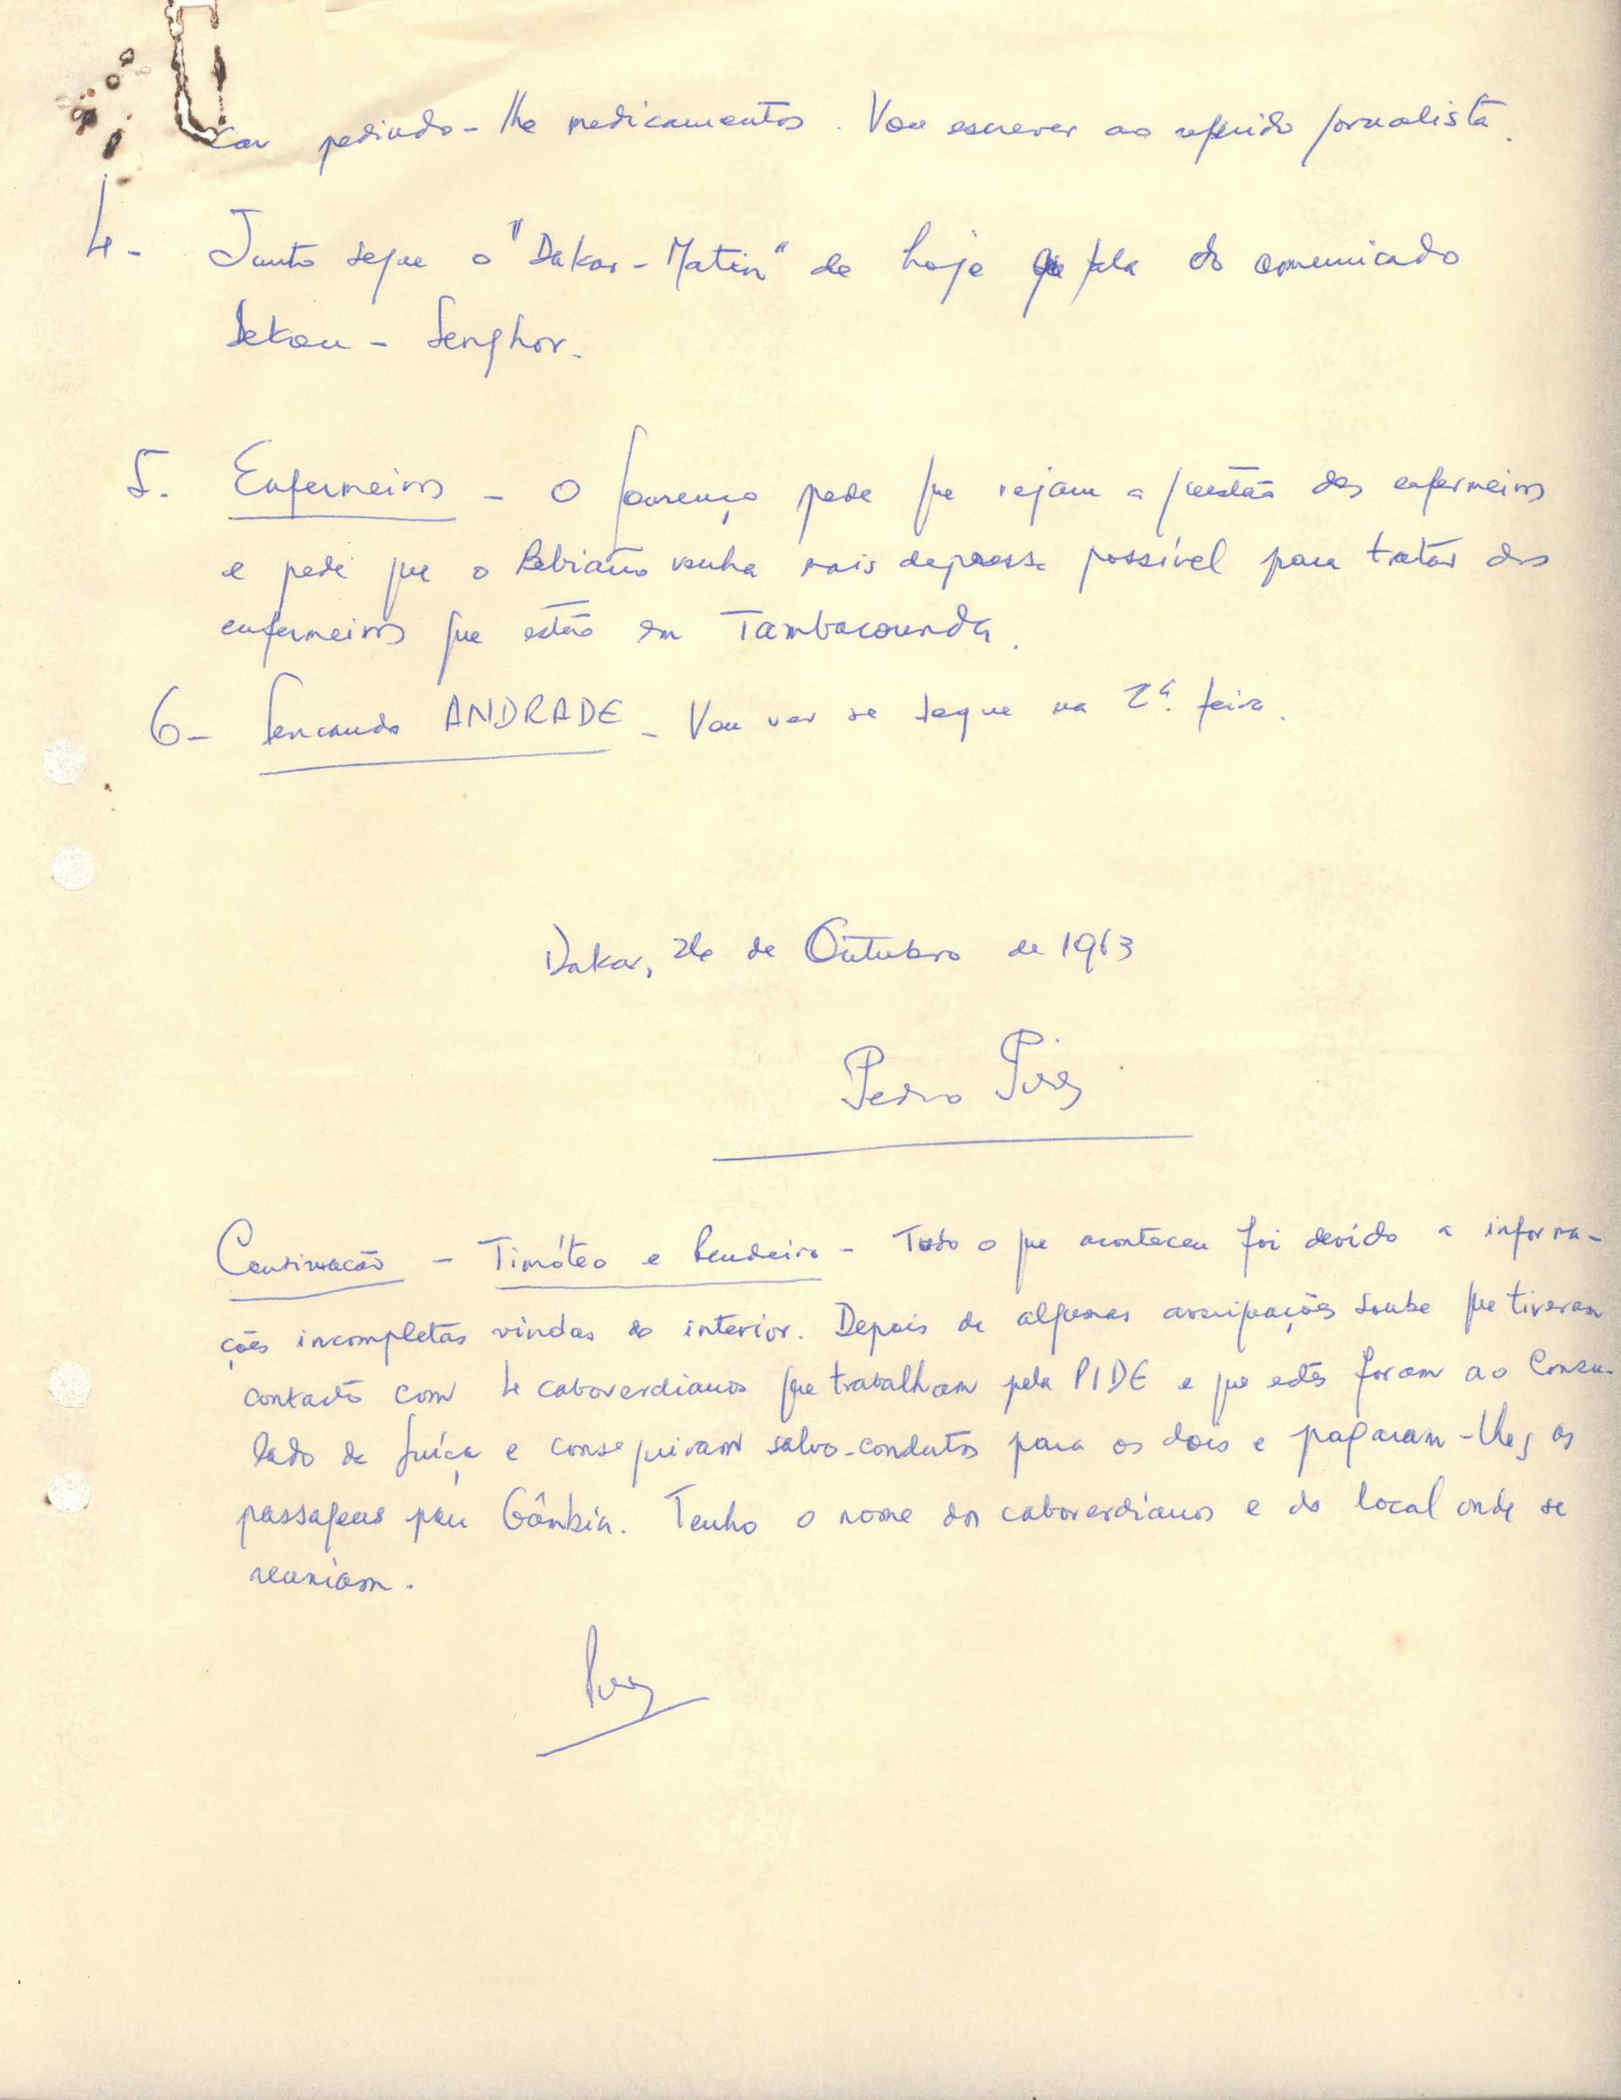 car pedindo-lhe medicamentos. Vou escrever ao referido jornalista.
4- Junto segue o "Dakar-Matin" de hoje que fala do comunicado
Sekou - Senghor.
5. Enfermeiros - O Lourenço pede que vejam a questão dos enfermeiros
e pede que o Bebiano venha mais depressa possível para tratar dos
enfermeiros que estão em Tambacounda.
6- ANDRADE - Vou ver se segue na 2ª feira.
Dakar, 26 de Outubro de 1963
Pedro Pires
Continuação - Timóteo e Bendeira - Todo o que aconteceu foi devido a informa-
ções incompletas vindas do interior. Depois de algumas averiguações soube que tiveram
contacto com 4 caboverdianos que trabalham pela PIDE e que estes foram ao Consu-
lado da Suíça e conseguiram salvo-condutos para os dois e pagaram-lhes as
passagens para Gâmbia. Tenho o nome dos caboverdianos e do local onde se
reuniam.
Pires